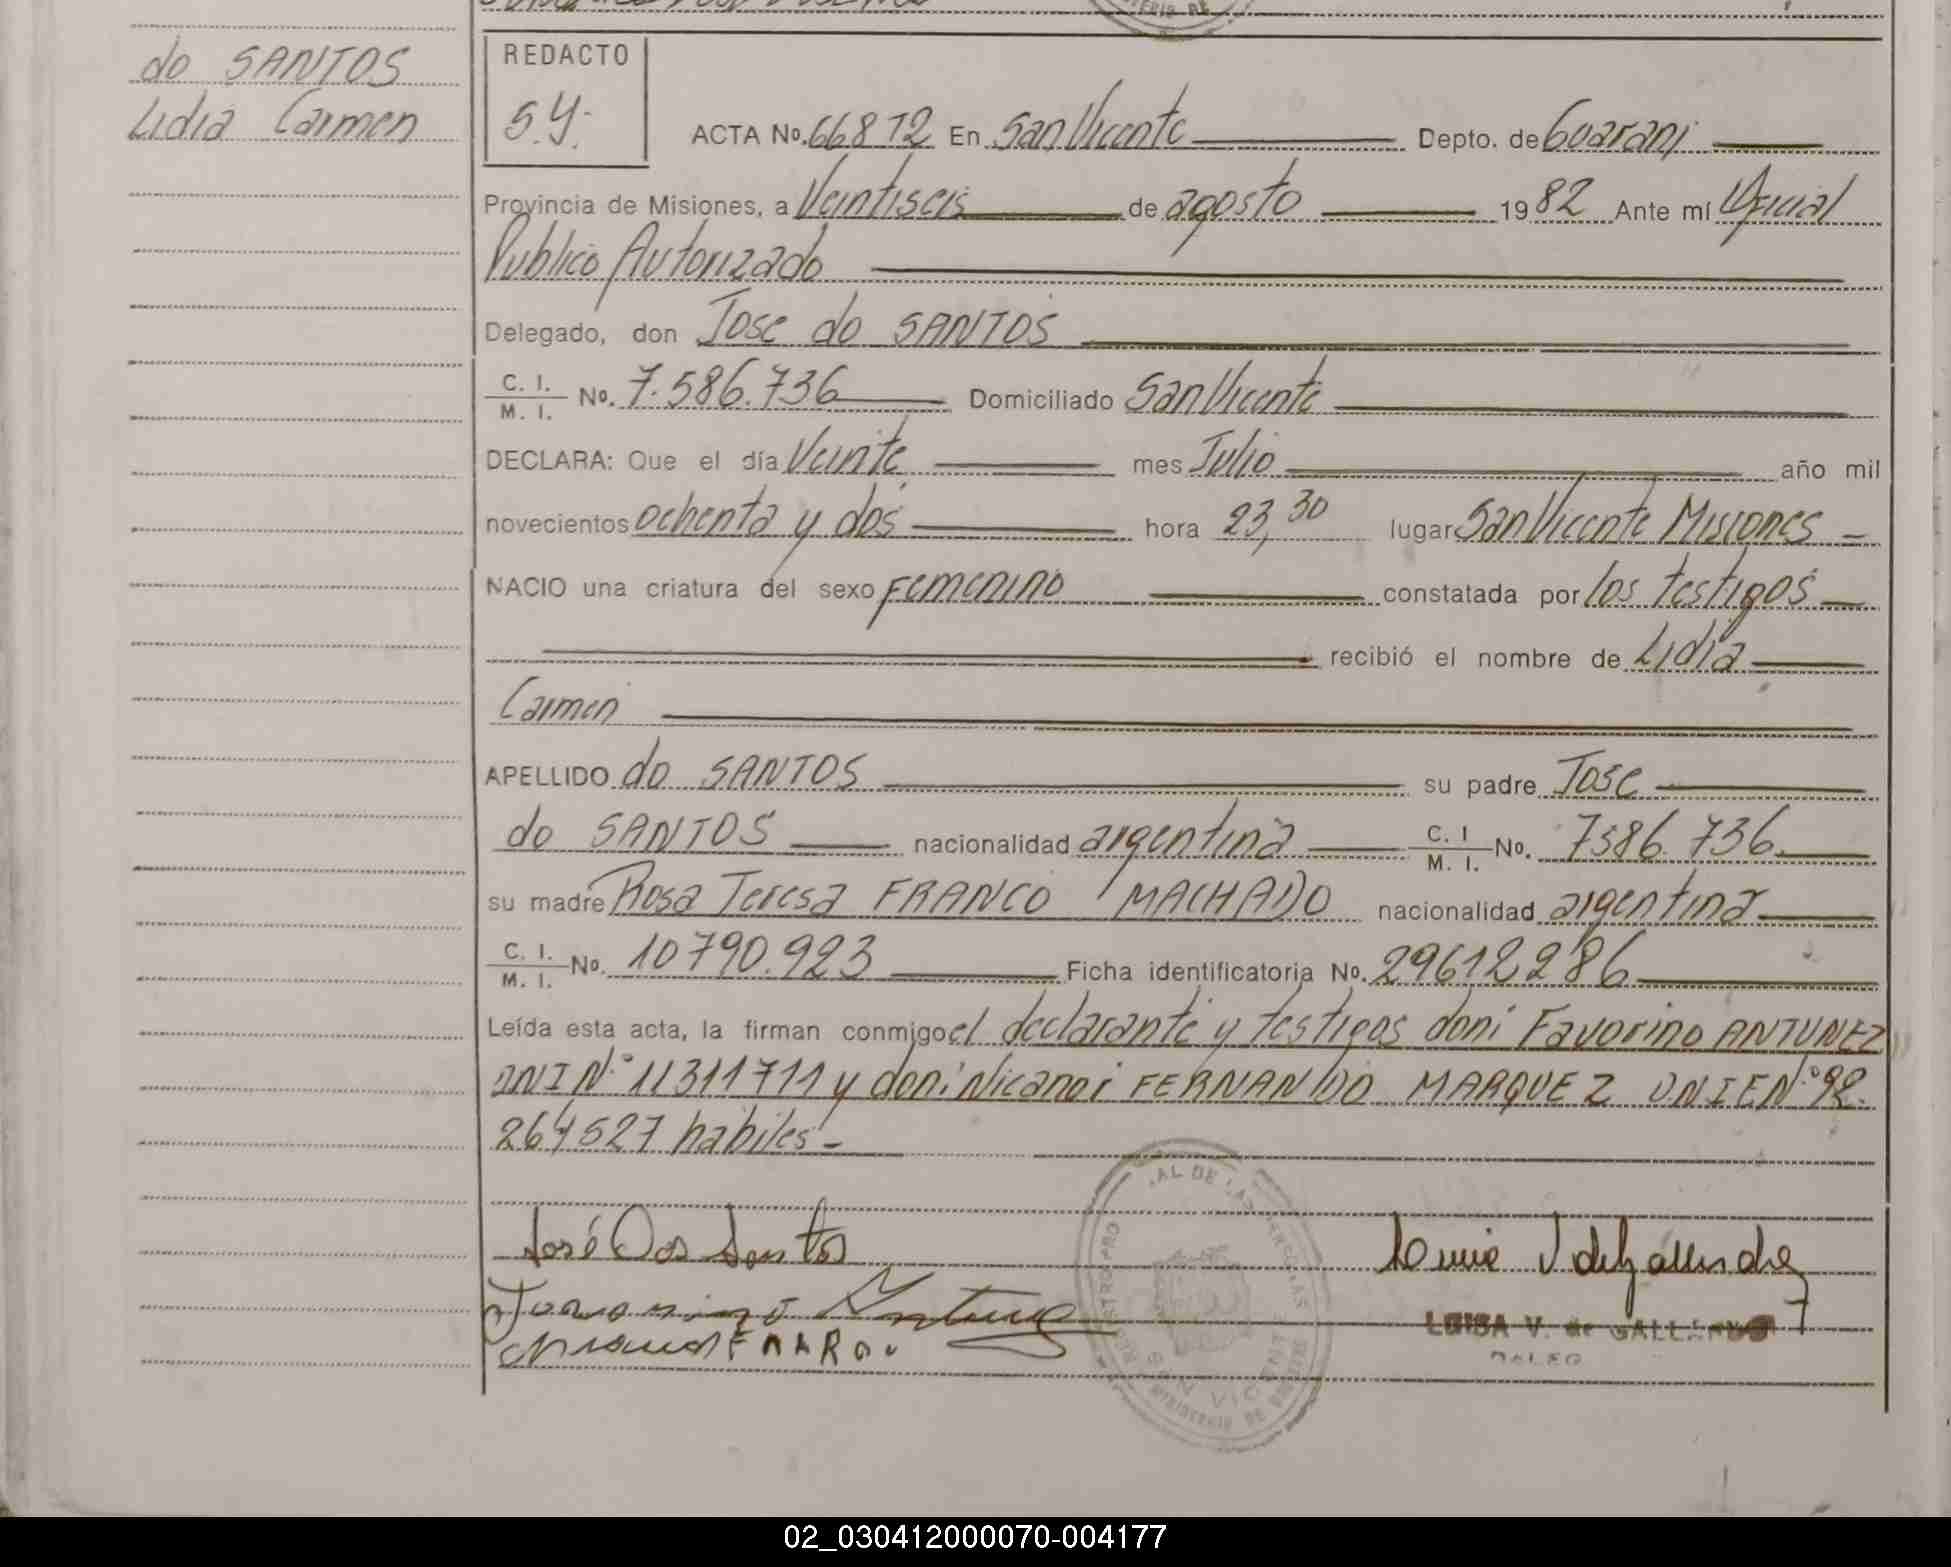 do SANTOS
Lidia Carmen
REDACTO
S.Y.
ACTA No. 66812 En San Vicente Depto. de Guarani
Provincia de Misiones, a Veintiseis de agosto 1982 Ante mí Oficial
Publico Autorizado
Delegado, don Jose do SANTOS
C. I. / M. I. No. 7.586.736 Domiciliado San Vicente
DECLARA: Que el día Veinte mes Julio año mil
novecientos ochenta y dos hora 23,30 lugar San Vicente Misiones -
NACIO una criatura del sexo Femenino constatada por los testigos
recibió el nombre de Lidia
Carmen
APELLIDO do SANTOS su padre Jose
do SANTOS nacionalidad argentina C. I / M. I. No. 7586.736
su madre Rosa Teresa FRANCO MACHADO nacionalidad argentina
C. I. / M. I. No. 10790.923 Ficha identificatoria No. 29612286
Leída esta acta, la firman conmigo el declarante y testigos don: Favorino ANTUNEZ
DNI N° 11311711 y don: Nicanor FERNANDO MARQUEZ DNIE N° 92.
264527 habiles -
José Dos Santos
LUISA V. de GALLARDO
SAN VICENTE
02_030412000070-004177